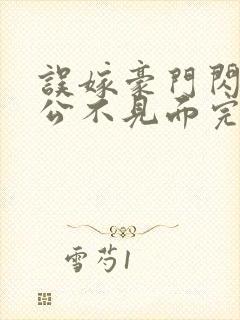 誤嫁豪門閃
公不見面完
雪芍1